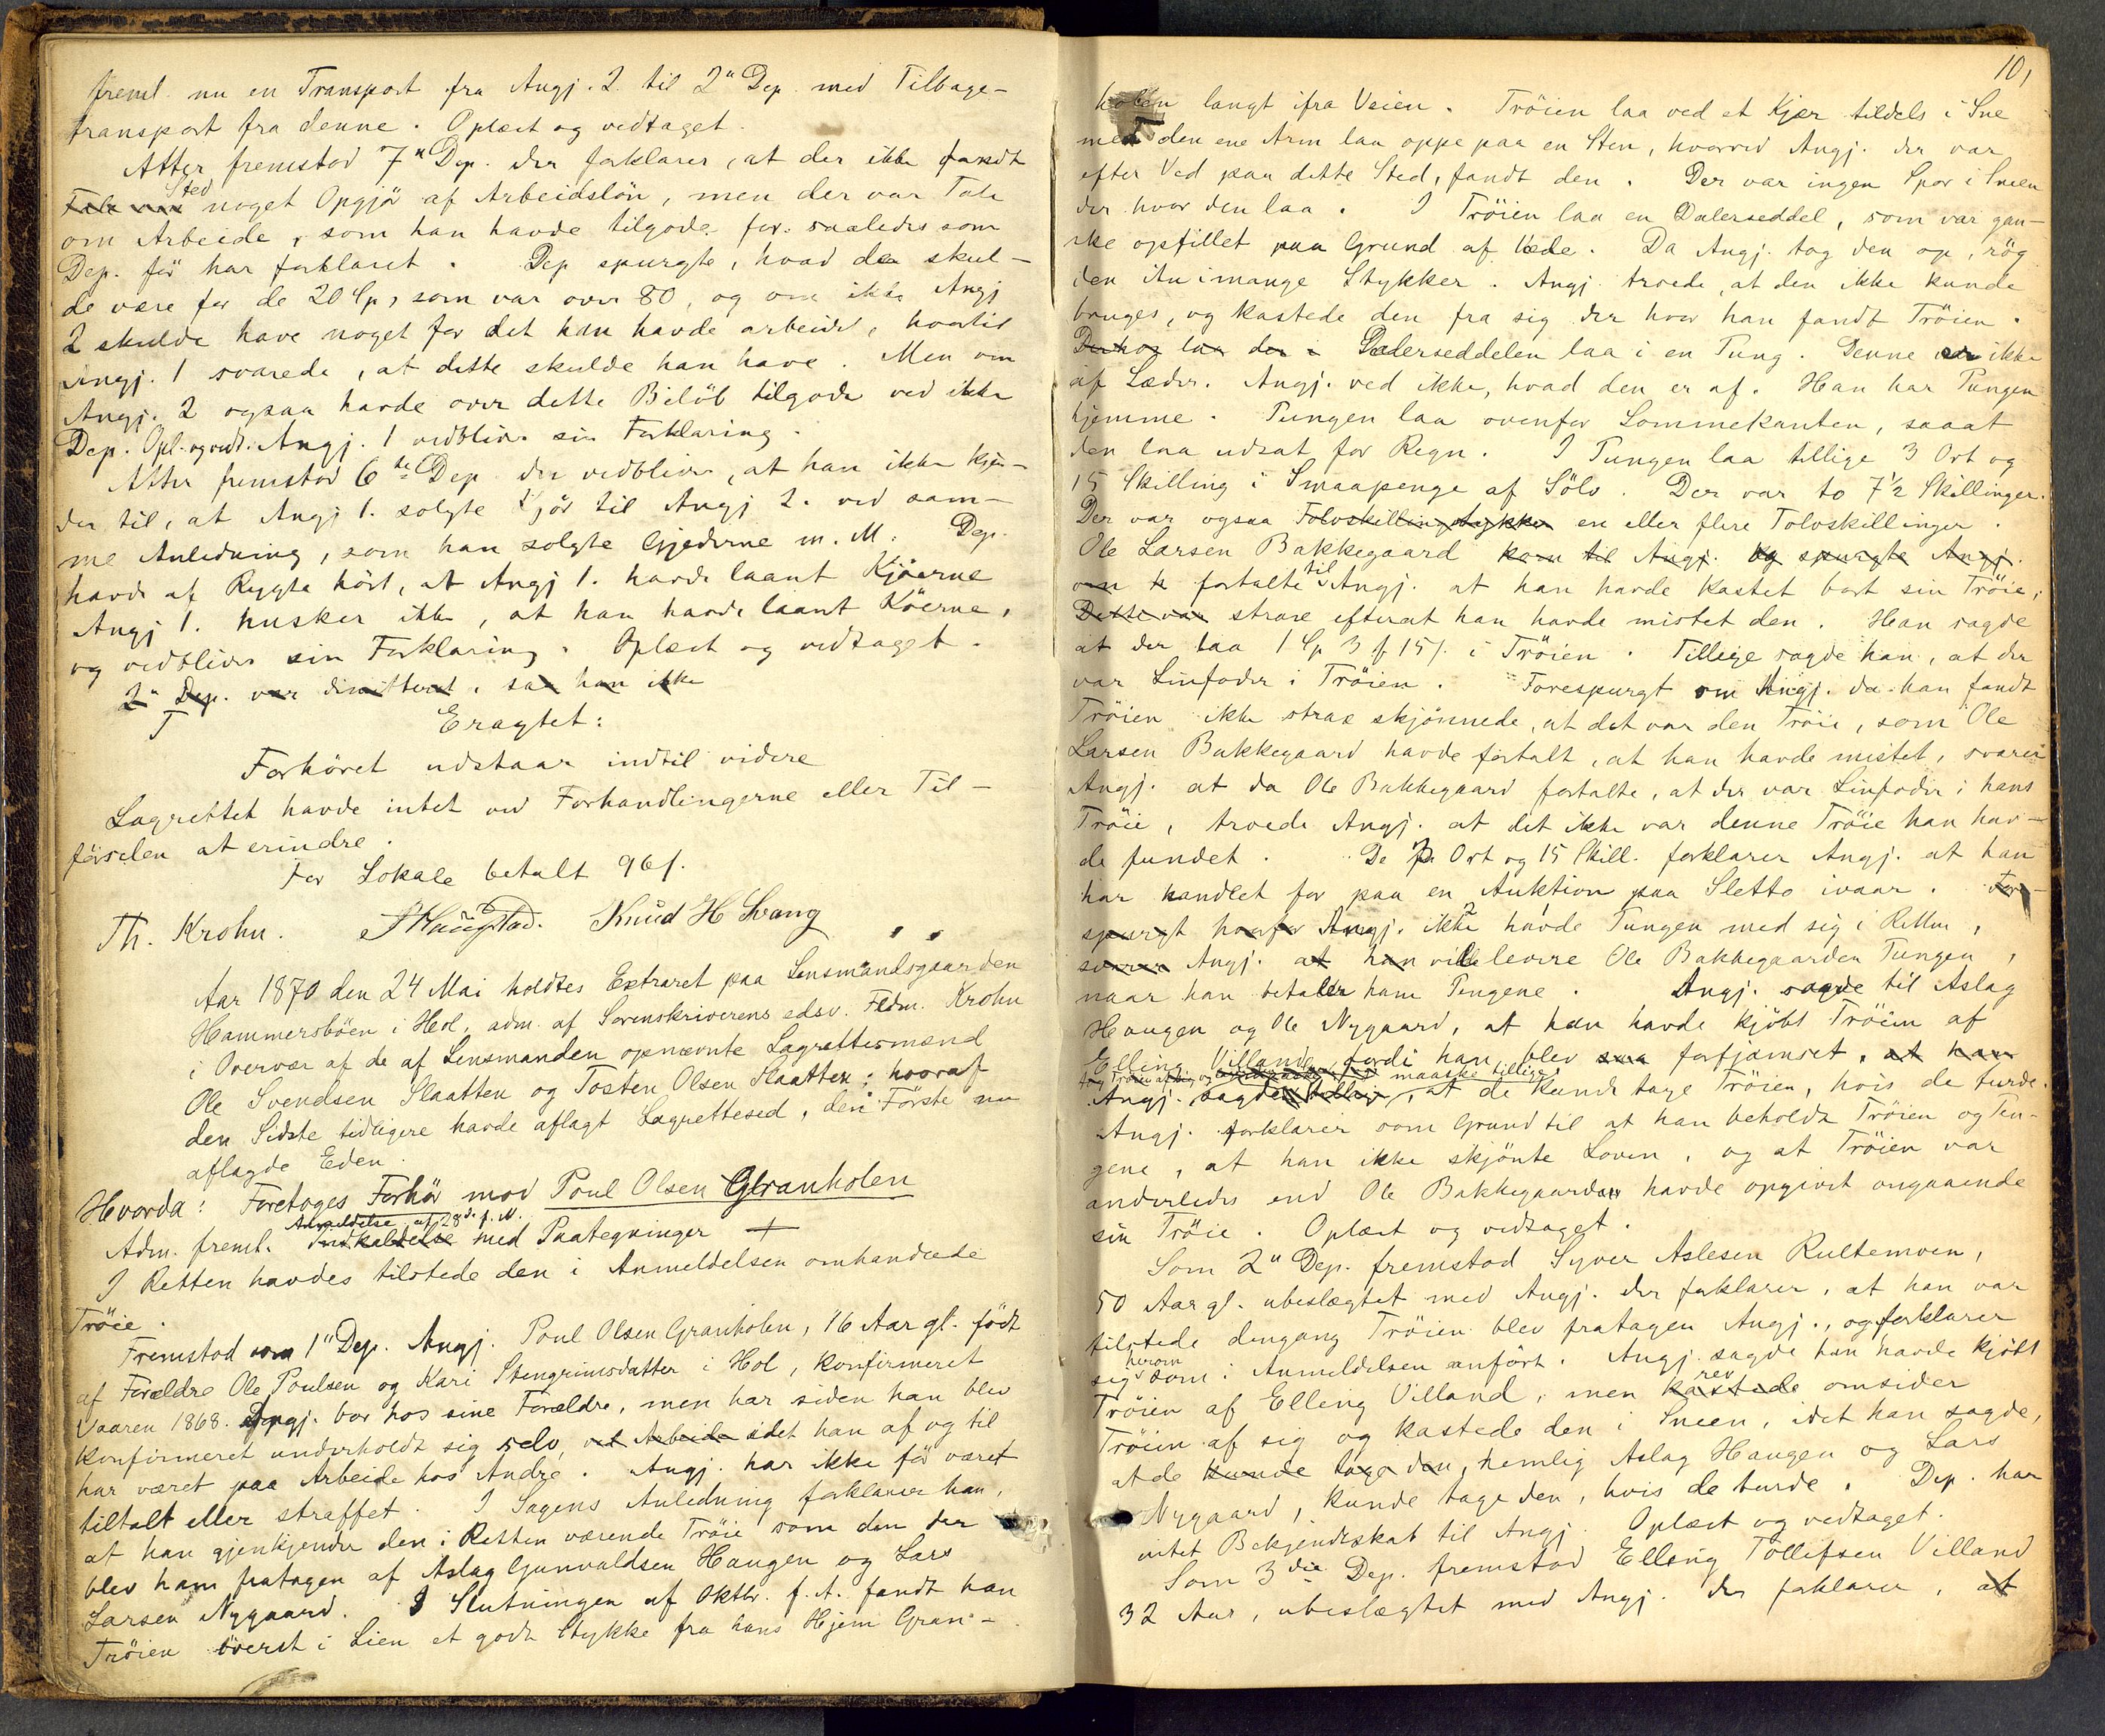 freml. nu en Transport fra Angj. 2 til 2n Dep. med Tilbage-
transport fra denne. Oplæst og vedtaget.
Atter fremstod 7n Dep. der forklarer, at der ikke fandt
Sted
noget Opgjör af Arbeidslön, men der var Tale
om Arbeide, som han havde tilgode for, saaledes som
Dep. för har forklaret. Dep spurgte, hvad der skul-
de være for de 20 Sp, som var over 80, og om ikke Angj
2 skulde have noget for det han havde arbeidet, hvortil
Angj. 1 svarede, at dette skulde han have. Men om
Angj. 2 ogsaa havde over dette Belöb tilgode ved ikke
Dep. Opl. og vedt. Angj. 1 vedbliver sin Forklaring.
Atter fremstod 6te Dep der vedbliver, at han ikke kjen-
der til, at Angj 1. solgte Kjör til Angj 2. ved sam-
me Anledning, som han solgte Gjederne m. M. Dep.
havde af Rygte hört, at Angj 1. havde laant Kjöerne
Angj 1. husker ikke, at han havde laant Köerne,
og vedbliver sin Forklaring. Oplæst og vedtaget.
2n Dep. var dimitteret, saa han ikke
Eragtet:
Forhöret udstaar indtil videre
Lagrettet havde intet ved Forhandlingerne eller Til-
förselen at erindre.
For Lokale betalt 96 s.
Th. Krohn. Knud H Svang
Aar 1870 den 24 Mai holdtes Extraret paa Lensmandsgaarden
Hammersböen i Hol, adm. af Sorenskriverens edsv. Fldm. Krohn
i Overvær af de af Lensmanden opnævnte Lagrettesmænd
Ole Svendsen Slaatten og Tosten Olsen Slaatten; hvoraf
den Sidste tidligere havde aflagt Lagretteseed, den Förste nu
aflagde Eden.
Hvorda: Foretoges Forhör mod Poul Olsen Granholen
Anmeldelse af 28de f. M.
Adm. freml. Indkaldelse med Paategninger +
I Retten havdes tilstede den i Anmeldelsen omhandlede
Tröie.
Fremstod som 1n Dep. Angj. Poul Olsen Granholen, 16 Aar gl. födt
af Forældre Ole Poulsen og Kari Stengrimsdatter i Hol, konfirmeret
Vaaren 1868. Angj. bor hos sine Forældre, men har siden han blev
konfirmeret underholdt sig selv, ved Arbeide idet han af og til
har været paa Arbeide hos Andre. Angj. har ikke för været
tiltalt eller straffet. I Sagens Anledning forklarer han,
at han gjenkjender den i Retten værende Tröie som den der
blev ham fratagen af Aslag Gunvaldsen Haugen og Lars
Larsen Nygaard. I Slutningen af Oktbr. f. A. fandt han
Tröien överst i Lien et godt Stykke fra hans Hjem Gran-
101
holen langt ifra Veien. Tröien laa ved et Kjær tildels i Sne
med den ene Arm laa oppe paa en Sten, hvorved Angj. der var
efter Ved paa dette Sted, fandt den. Der var ingen Spor i Sneen
der hvor den laa. I Tröien laa en Dalerseddel, som var gan-
ske opfillet paa Grund af Væde. Da Angj. tog den op, røg
den itu i mange Stykker. Angj. troede, at den ikke kunde
bruges, og kastede den fra sig der hvor han fandt Tröien.
Derhos laa der i Dalerseddelen laa i en Pung. Denne er ikke
af Læder. Angj. ved ikke, hvad den er af. Han har Pungen
hjemme. Pungen laa ovenfor Lommekanten, saaat
den laa udsat for Regn. I Pungen laa tillige 3 Ort og
15 Skilling i Smaapenge af Sölv. Der var to 7½ Skillinger.
Der var ogsaa Tolvskillingstykker en eller flere Tolvskillinger.
Ole Larsen Bakkegaard kom til Angj. og spurgte Angj.
om h fortalte til Angj. at han havde kastet bort sin Tröie,
Dette var strax efterat han havde mistet den. Han sagde
at der laa 1 Sp 3 f 15 s. i Tröien. Tillige sagde han, at der
var Linfoder i Tröien. Forespurgt om Angj. da han fandt
Tröien ikke strax skjönnede, at det var den Tröie, som Ole
Larsen Bakkegaard havde fortalt, at han havde mistet, svarer
Angj. at da Ole Bakkegaard fortalte, at der var Linfoder i hans
Tröie, troede Angj. at det ikke var denne Tröie han hav-
de fundet. De 3 Ort og 15 Skill. forklarer Angj. at han
har handlet for paa en Auktion paa Sletto ivaar. For-
spurgt hvorfor Angj. ikke havde Pungen med sig i Retten,
svarer Angj. at han vil levere Ole Bakkegaarden Pungen,
naar han betaler ham Pengene. Angj. sagde til Aslag
Haugen og Ole Nygaard, at han havde kjöbt Tröien af
Elling Villande, fordi han blev saa forfjamset, at han
tog Tröien af sig og maaske tillige
Angj. sagde tillige, at de kunde tage Tröien, hvis de turde.
Angj. forklarer som Grund til at han beholdt Tröien og Pen-
gene, at han ikke skjönte Loven, og at Tröien var
anderledes end Ole Bakkegaarden havde opgivet angaaende
sin Tröie. Oplæst og vedtaget.
Som 2n Dep. fremstod Syver Aslesen Rultemoen,
50 Aar gl. ubeslægtet med Angj. der forklarer, at han var
tilstede dengang Tröien blev fratagen Angj., og forklarer
herom
sig som i Anmeldelsen anfört. Angj. sagde han havde kjöbt
rev
Tröien af Elling Villand, men kastede omsider
Tröien af sig og kastede den i Sneen, idet han sagde,
at de kunde tage den, nemlig Aslag Haugen og Lars
Nygaard, kunde tage den, hvis de turde. Dep. har
intet Bekjendtskab til Angj. Oplæst og vedtaget.
Som 3die Dep. fremstod Elling Tollefsen Villand
32 Aar, ubeslægtet med Angj. der forklarer, at